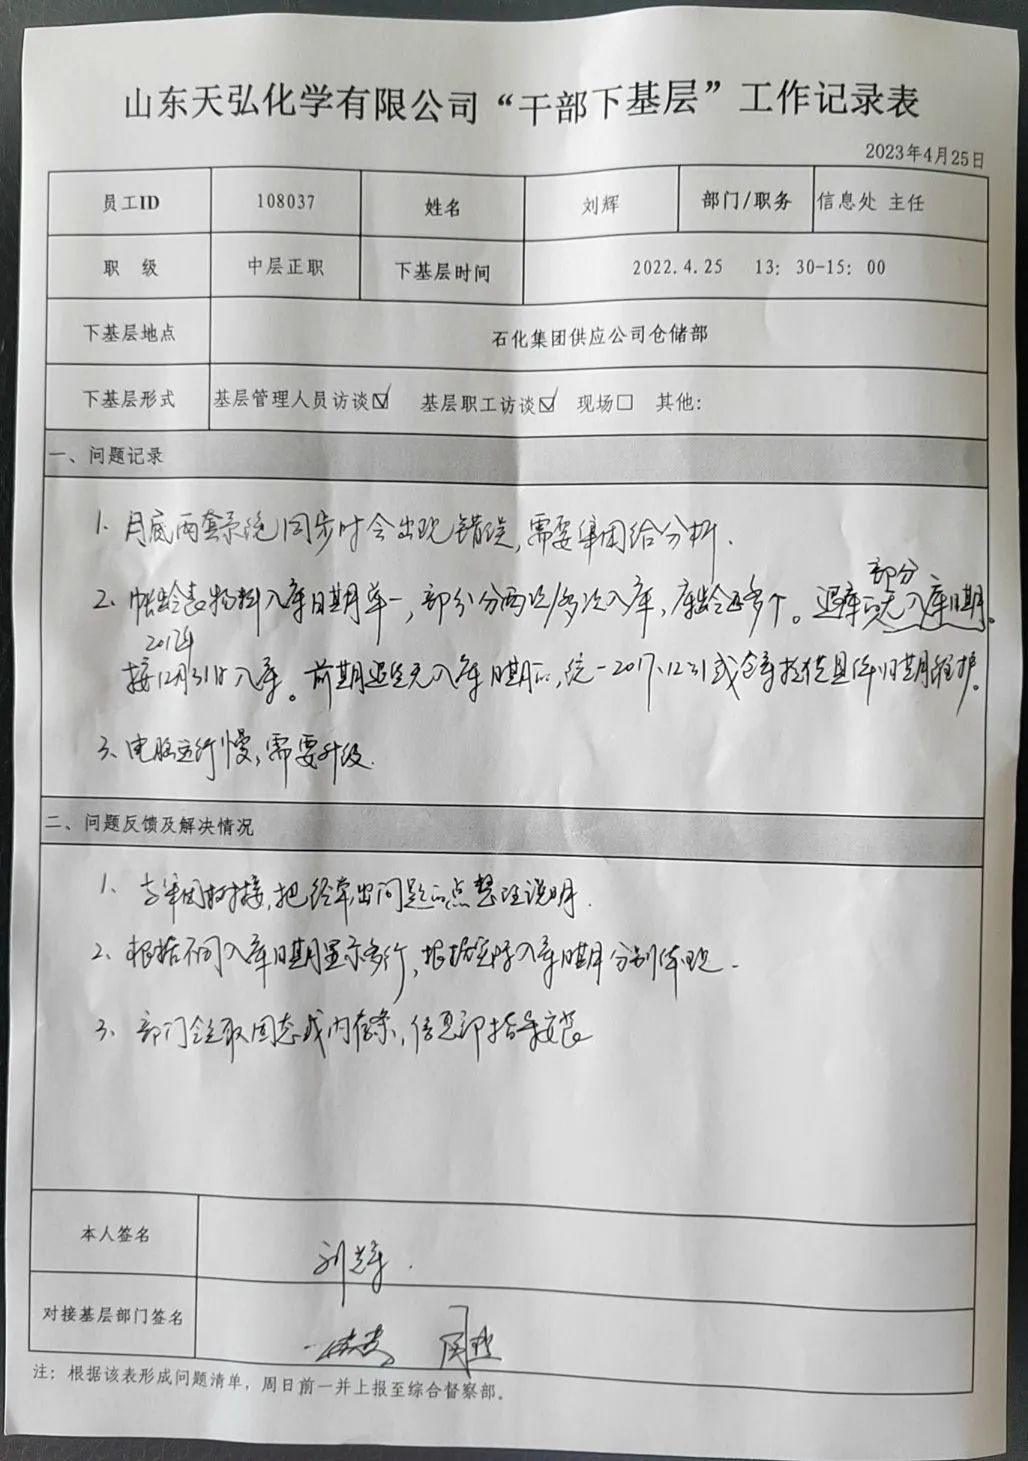 山东天弘化学有限公司“干部下基层”工作记录表
2023年4月25日
员工ID 108037 姓名 刘辉 部门/职务 信息处 主任
职 级 中层正职 下基层时间 2022.4.25 13: 30-15: 00
下基层地点 石化集团供应公司仓储部
下基层形式 基层管理人员访谈☑ 基层职工访谈☑ 现场□ 其他:
一、问题记录
1. 月底两套系统同步时会出现错误,需要集团给分析.
部分
2、帐龄表物料入库日期单一,部分分两次/多次入库,库龄远多个。退库无入库日期。
2017年
按12月31日入库。前期无入库日期,统一2017.12.31或仓库按具体日期维护。
3、电脑运行慢,需要升级.
二、问题反馈及解决情况
1、与集团对接,把经常出问题的点整理说明.
2、根据不同入库日期显示多行,根据实际入库日期分别体现.
3、部门领取固态或内存条,信息部指导安装
本人签名 刘辉.
对接基层部门签名
注: 根据该表形成问题清单,周日前一并上报至综合督察部。